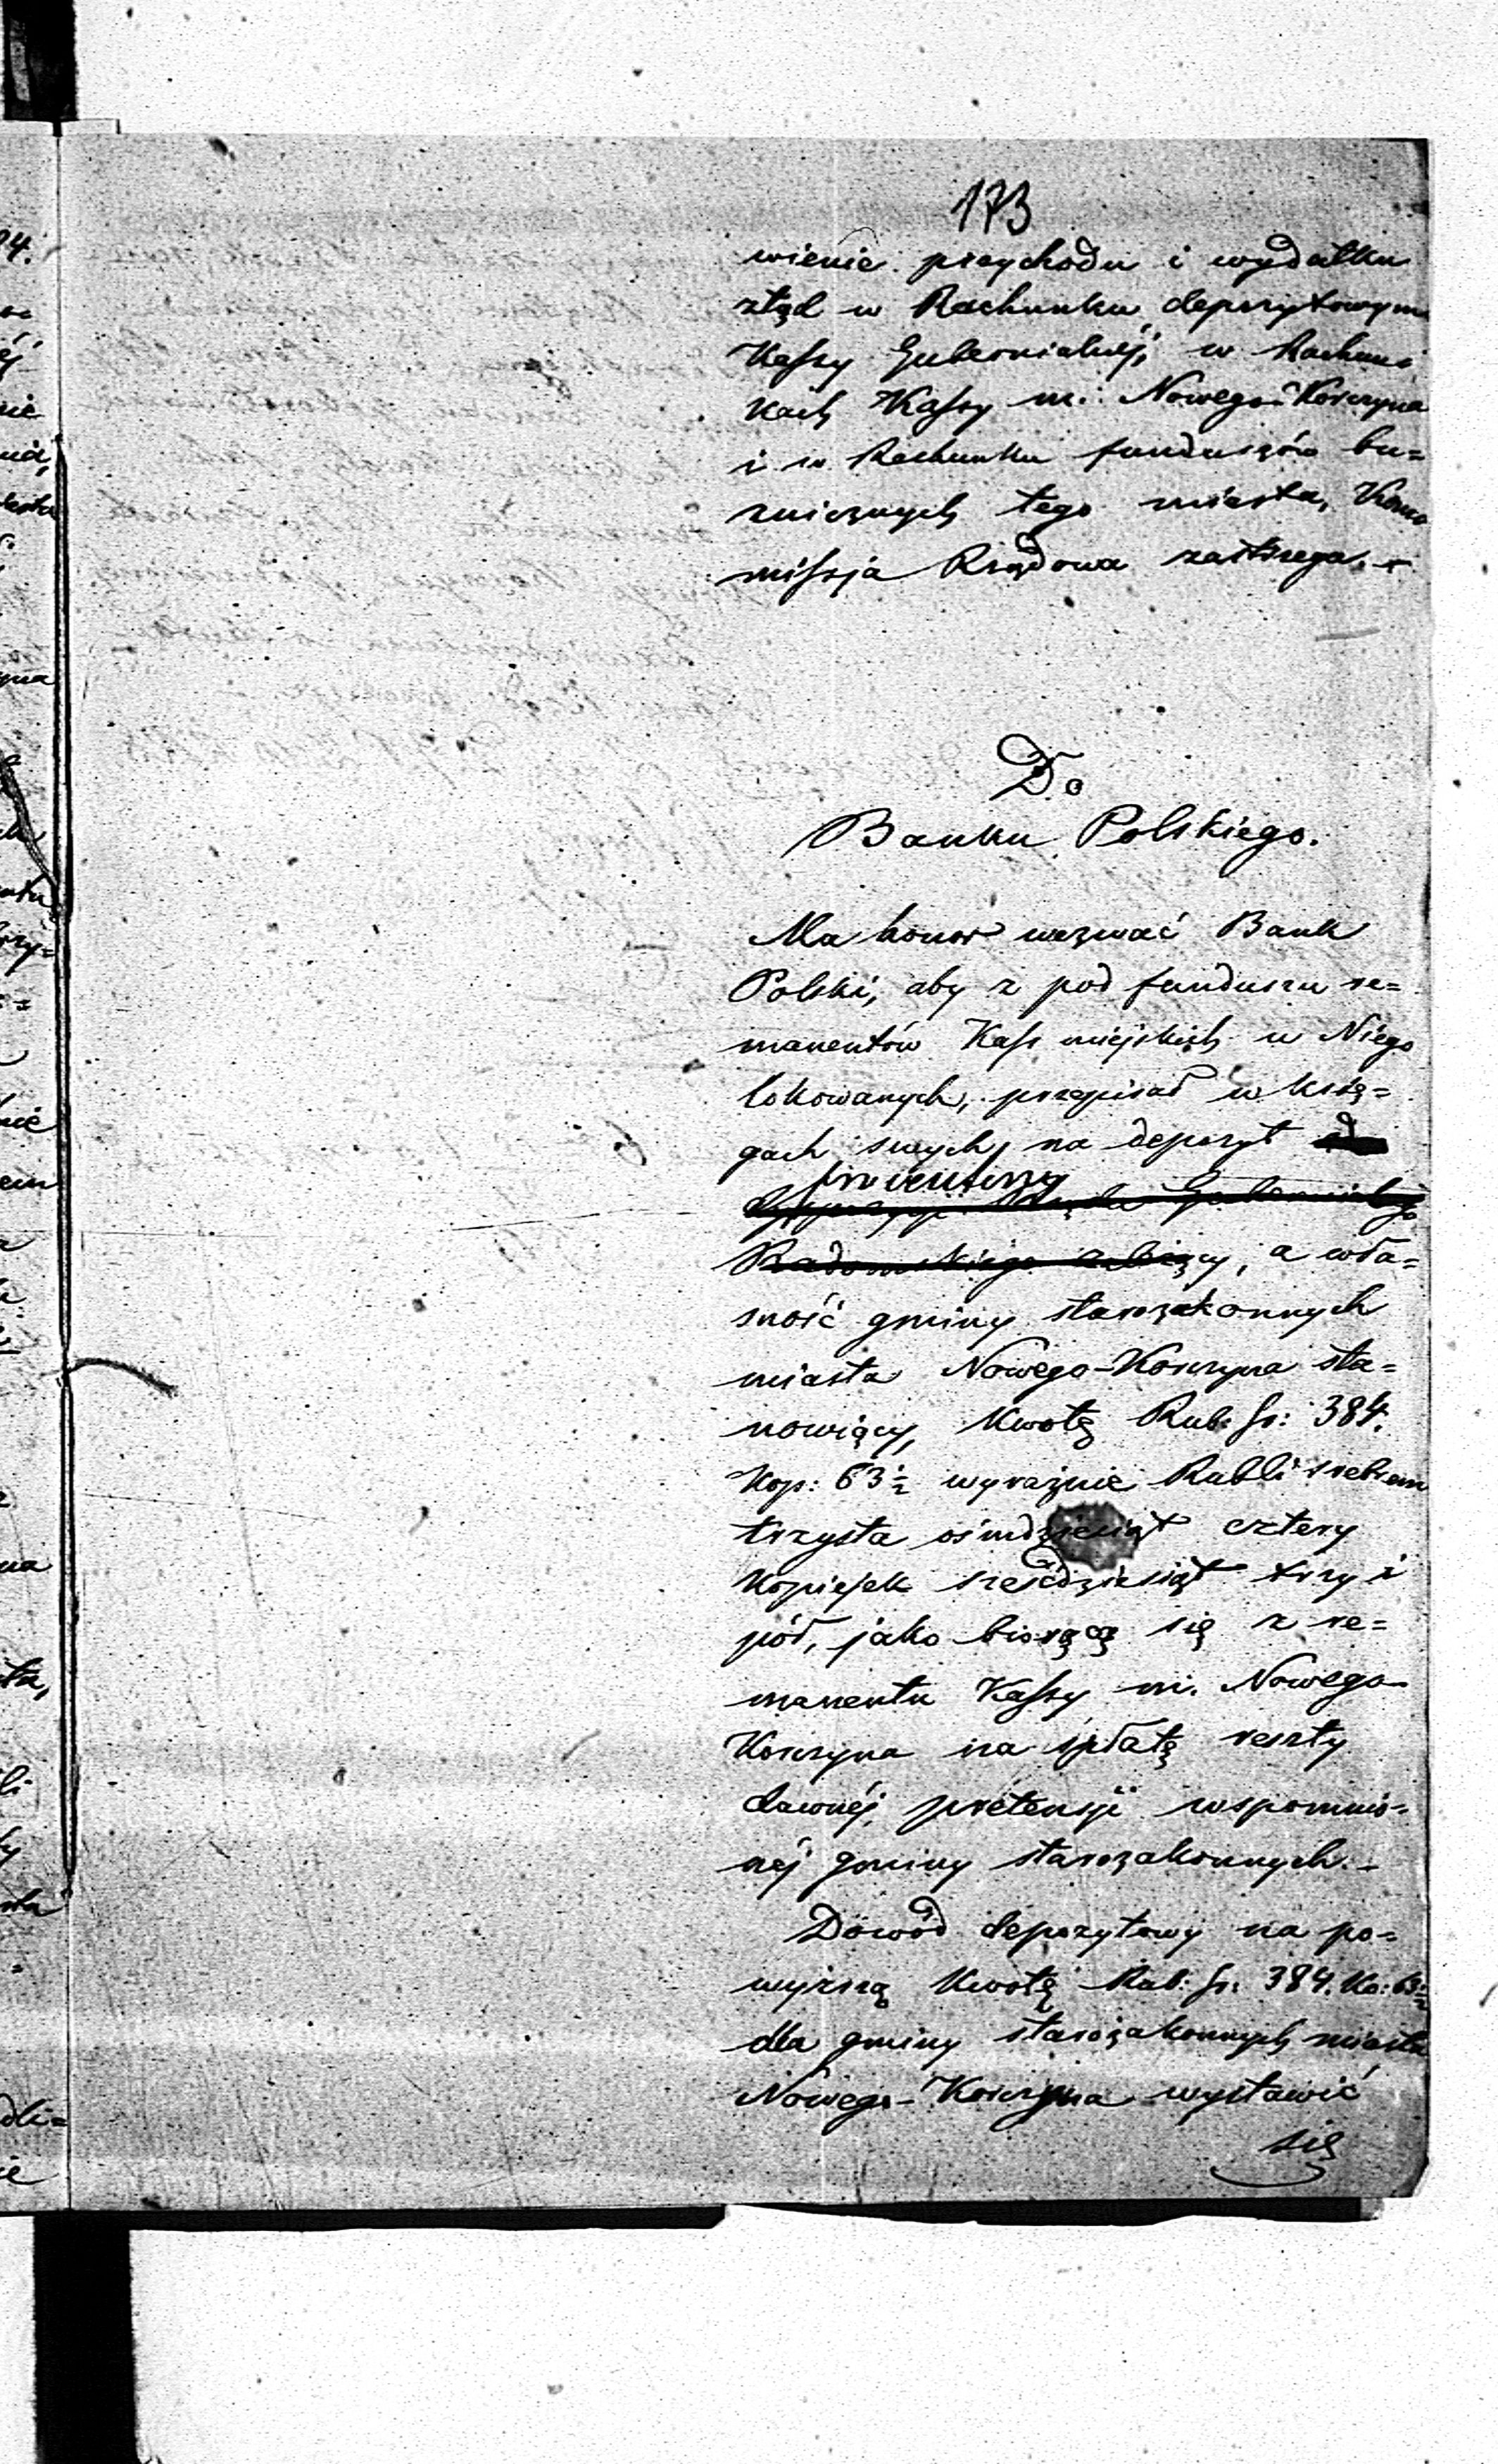 173
wienie przychodu i wydatku
ztąd w Rachunku depozytowym
Kassy Gubernialnéj, w Rachun
kach Kassy m: Nowego-Korczyna
i w Rachunku funduszów bu=
żniczych tego miasta, Kom
missja Rządowa zastrzega.
Do
Banku Polskiego.
Ma honor wezwać Bank
Polski, aby z pod funduszu re=
manentów Kass miejskich w Niego
lokowanych, przepisał w księ=
gach swych, na depozyt
procentowy
Radomskiego, a wła=
sność gminy starozakonnych
miasta Nowego-Korczyna sta=
nowiący, Kwotę Rub. sr: 384.
Kop: 63½ wyraźnie Rubli srebrem
trzysta ośmdziesiąt cztery
Kopiejek sześćdziesiąt trzy i
pół, jako biorącą się z re=
manentu Kassy m. Nowego-
Korczyna na spłatę reszty
dawnéj, pretensji wspomnio-
néj gminy starozakonnych.-
Dowód depozytowy na po=
wyższą Kwotę Rub: sr: 384. Ko: 63½
dla gminy starozakonnych miasta
Nowego-Korczyna wystawić
się